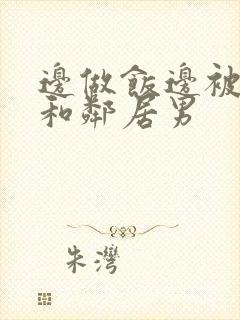 邊做飯邊被
和鄰居男
朱灣